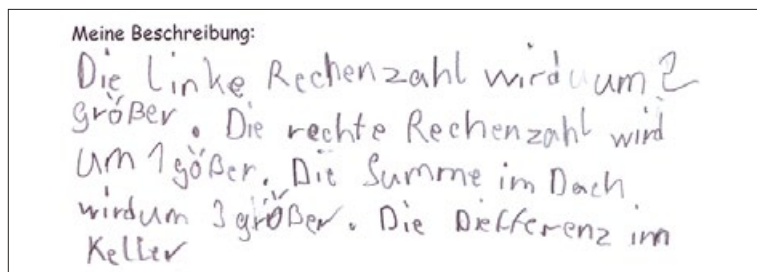 Meine Beschreibung:
Die linke Rechenzahl wird um 2
größer. Die rechte Rechenzahl wird
um 1 gößer. Die Summe im Dach
wird um 3 größer. Die Diefferenz im
Keller